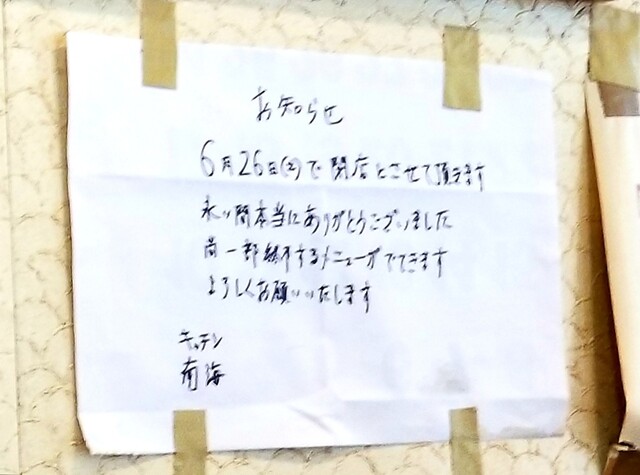 お知らせ
6月26日(土)で閉店とさせて頂きます
永い間本当にありがとうございました
尚一部終了するメニューがでてきます
よろしくお願いいたします
キッチン
南海